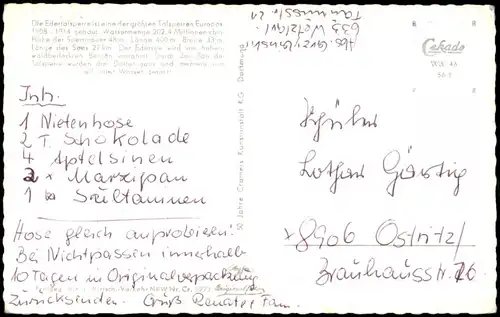 Die Edertalsperre ist eine der größten Talsperren Europas
1908 - 1914 gebaut. Wassermenge 202,4 Millionen cbm
Höhe der Sperrmauer 48m. Länge 400m. Breite
Länge des Sees 27km. Der Edersee wird von hohen
waldbedeckten Bergen umrahmt. Durch den Bau der
Talsperre wurden drei Dörfer
Wasser
Abs. Grzybusch
633 Wetzlar
Taunusstr. 21
Cekade
WS 46
Inh.
1 Nietenhose
2 T. Schokolade
4 Apfelsinen
2 x Marzipan
1 x Sultaninen
Hose gleich anprobieren!
Bei Nichtpassen innerhalb
10 Tagen in Originalverpackung
zurücksenden. Gruß Renate + Fam.
50 Jahre Cramers Kunstanstalt KG Dortmund
Schüler
Lothar Gürtig
x 8906 Ostritz/
Brauhausstr. 26